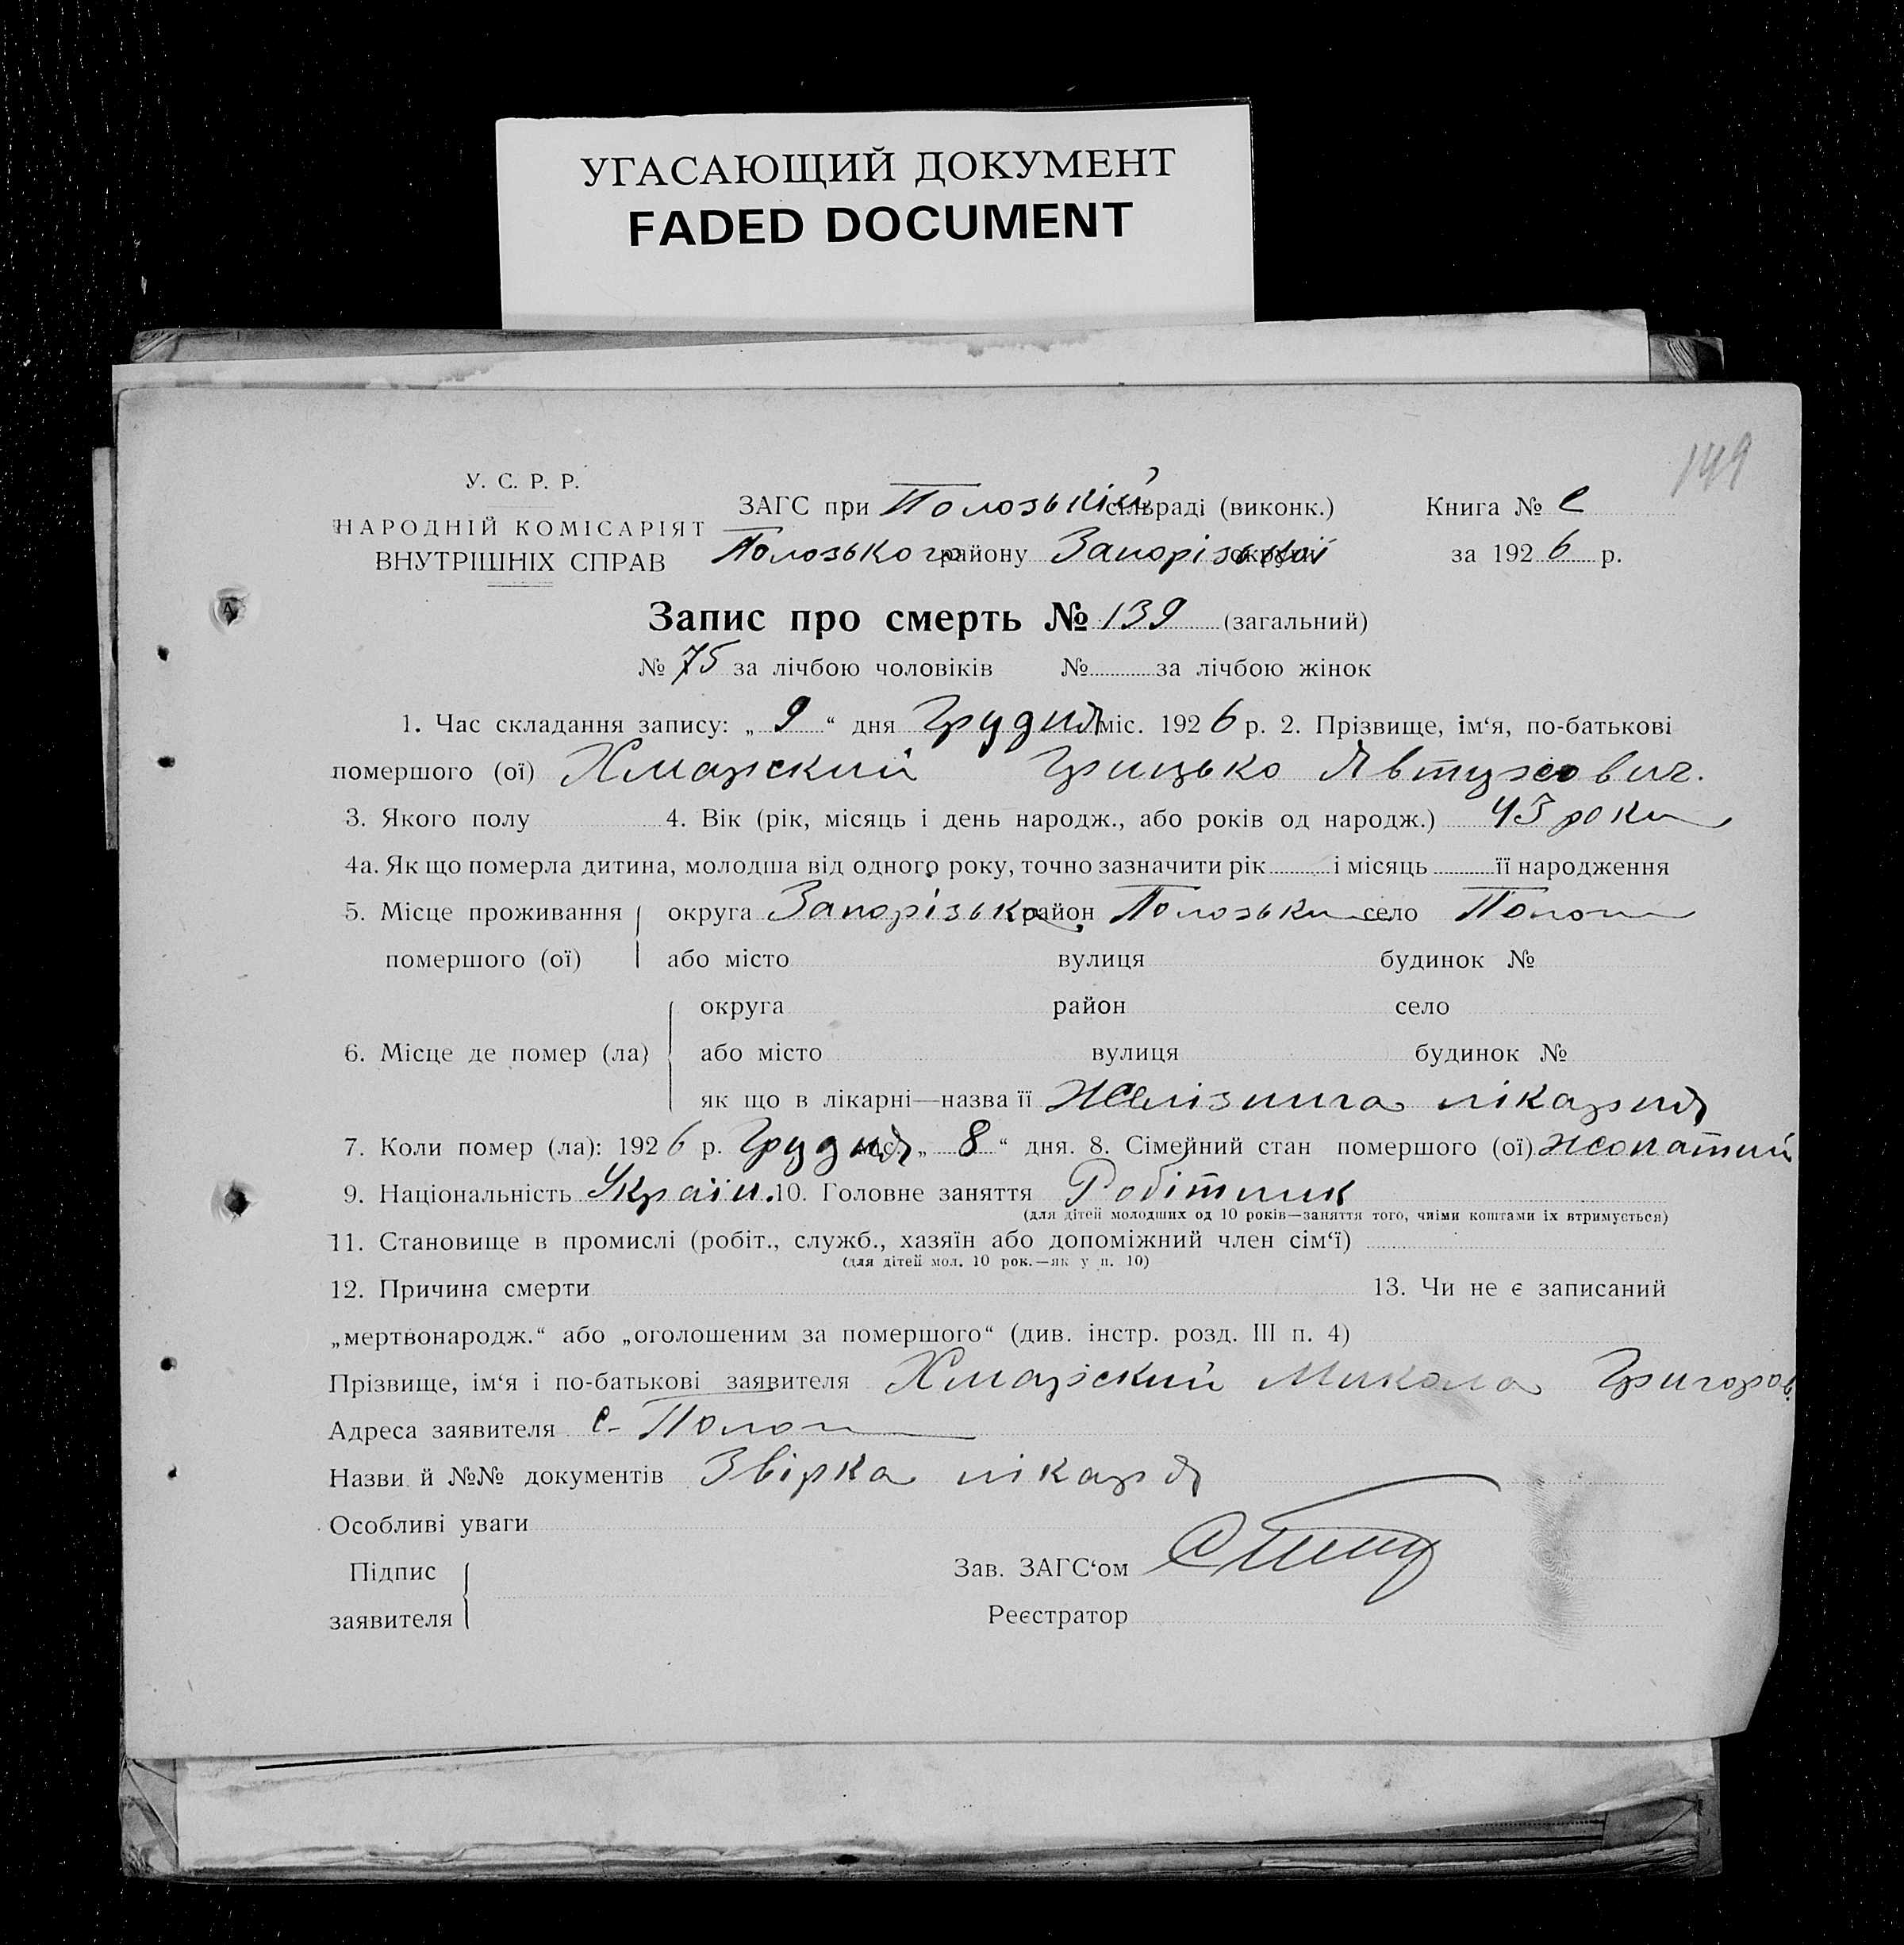 УГАСАЮЩИЙ ДОКУМЕНТ
FADED DOCUMENT
149
У. С. Р. Р.
НАРОДНІЙ КОМІСАРІЯТ
ВНУТРІШНІХ СПРАВ
ЗАГС при Полозькій сільраді (виконк.) Книга №
Полозького району Запорізької округи за 1926 р.
Запис про смерть № 139 (загальний)
№ 75 за лічбою чоловіків № за лічбою жінок
1. Час складання запису: „ 9 “ дня Грудня міс. 1926 р. 2. Прізвище, ім‘я, по-батькові
помершого (ої) Хмарский Грицько Явтухович.
3. Якого полу 4. Вік (рік, місяць і день народж., або років од народж.) 43 роки
4а. Як що померла дитина, молодша від одного року, точно зазначити рік і місяць її народження
5. Місце проживання округа Запорізька район Полозьки село Пологи
помершого (ої) або місто вулиця будинок №
округа район село
6. Місце де помер (ла) або місто вулиця будинок №
як що в лікарні—назва її лікарня
7. Коли помер (ла): 1926 р. Грудня міс. „ 8 “ дня. 8. Сімейний стан помершого (ої) жонатий
9. Національність Україн. 10. Головне заняття Робітник
(для дітей молодших од 10 років—заняття того, чиїми коштами їх втримується)
11. Становище в промислі (робіт., служб., хазяїн або допоміжний член сім‘ї)
(для дітей мол. 10 рок.—як у п. 10)
12. Причина смерти 13. Чи не є записаний
„мертвонародж.“ або „оголошеним за помершого“ (див. інстр. розд. III п. 4)
Прізвище, ім‘я і по-батькові заявителя Хмарский Микола Григоров.
Адреса заявителя с. Пологи
Назви й №№ документів лікаря
Особливі уваги
Підпис
заявителя
Зав. ЗАГС‘ом
Реєстратор